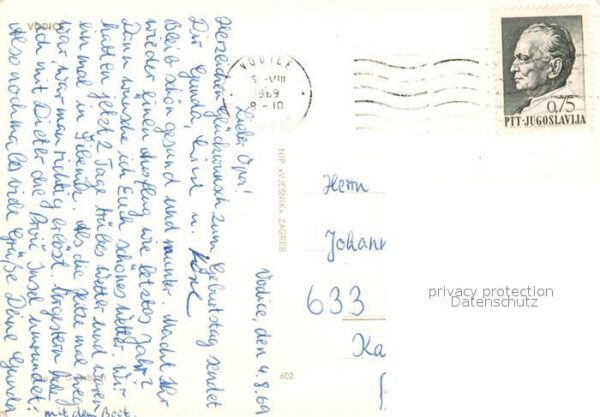 VODICE
Vodice, den 4.8.69
Lieber Opa!
Herzlichen Glückwunsch zum Geburtstag sendet
Dir Gunda, u.
Bleib schön gesund und munter. Macht Ihr
wieder einen Ausflug wie letztes Jahr?
Dann wünsche ich Euch schönes Wetter. Wir
hatten jetzt 2 Tage trübes Wetter und waren
einmal in Sibenik. Als die Hitze mal weg
war, war man richtig erlöst. Vorgestern habe
ich mit Dieter die Insel umrundet.
mit dem Boot.
Also nochmals viele Grüße Deine Gunda
VODICE
VIII
1969
9-10
0,75
PTT-JUGOSLAVIJA
NIP »VJESNIK« ZAGREB
602
Herrn
Johann
633
Ka
privacy protection
Datenschutz